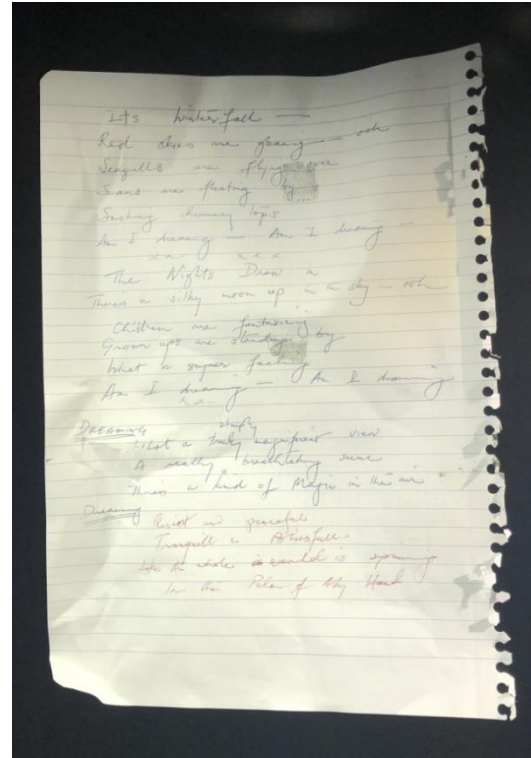 Its winter fall —
Red skies are gleaming — ooh
Seagulls are flying over
Swans are floating by
Smoking chimney tops
Am I dreaming — Am I dreaming —
x x x x x
The Nights Draw in
There's a silky moon up in the sky — ooh
Children are fantasising
Grown ups are standing by
What a super feeling
Am I dreaming — Am I dreaming
x x
DREAMING
simply
What a truly magnificent view
A really breathtaking scene
There's a kind of Magic in the air
Dreaming
Quiet and peaceful
Tranquill & Blissfull
Like the whole world is spinning
In the Palm of My Hand